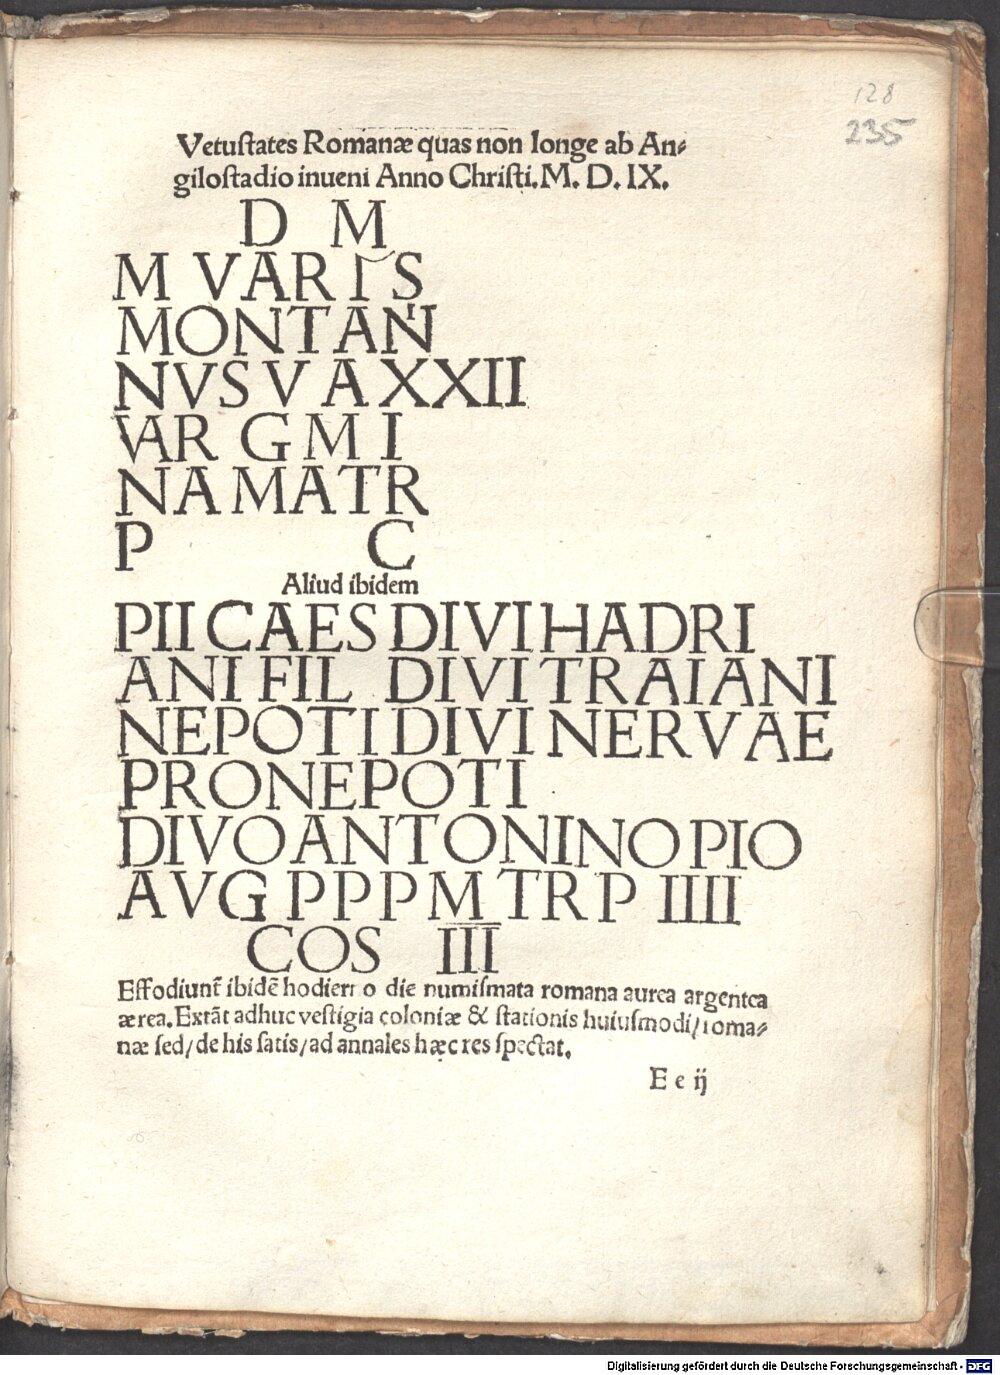 128
235
Vetuſtates Romanæ quas non longe ab An⸗
giloſtadio inueni Anno Chriſti. M. D. IX.
D M
M VARI S
MONTAN
NVS V A XXII
VAR G M I
NA MATR
P C
Aliud ibidem
PII CAES DIVI HADRI
ANI FIL DIVI TRAIANI
NEPOTI DIVI NERVAE
PRONEPOTI
DIVO ANTONINO PIO
AVG P P P M TR P IIII
COS III
Effodiunt̃ ibidẽ hodierno die numiſmata romana aurea argentea
ærea. Extãt adhuc veſtigia coloniæ & ſtationis huiuſmodi/ roma⸗
næ ſed/ de his ſatis/ ad annales hæc res ſpectat.
E e ij
Digitalisierung gefördert durch die Deutsche Forschungsgemeinschaft - DFG